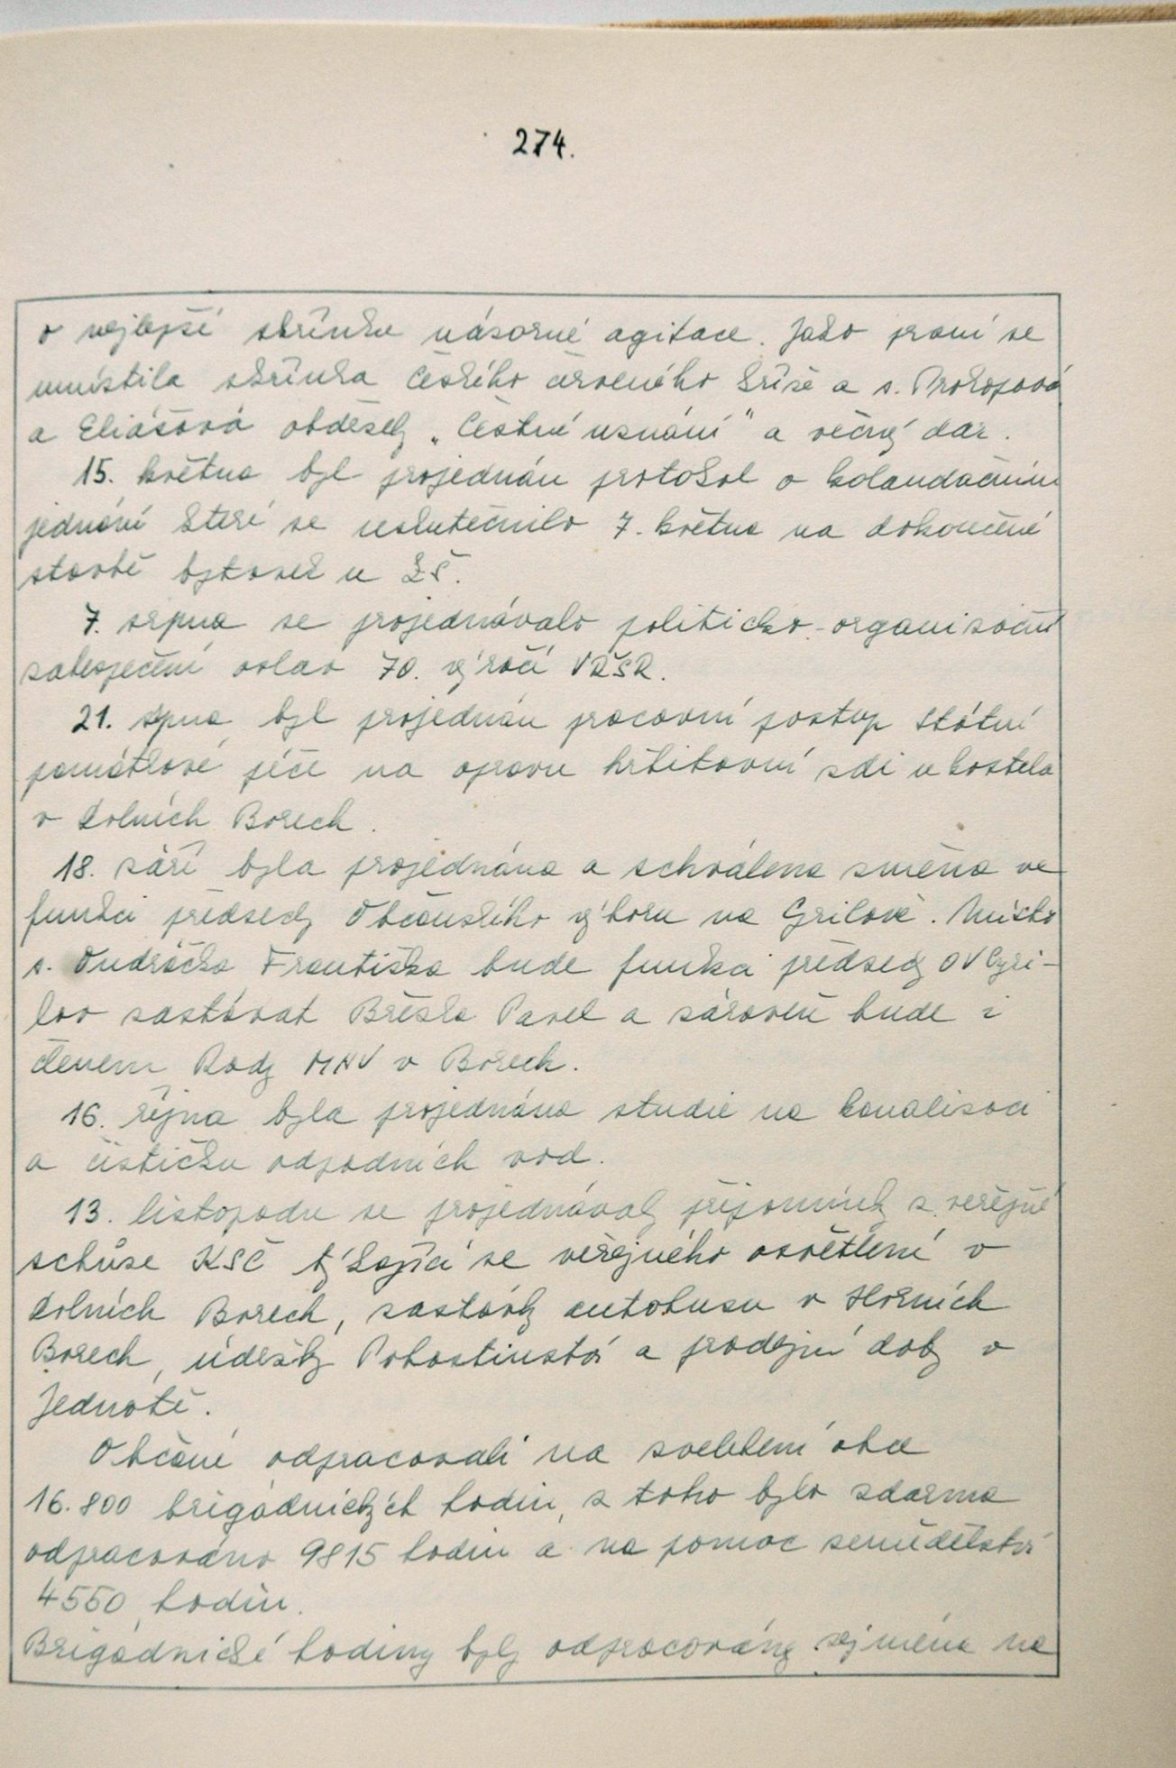 274.
o nejlepší skřínku názorné agitace. Jako první se
umístila skřínka Českého červeného kříže a s. Prokopová
a Eliášová obdržely „Čestné uznání" a věčný dar.
15. května byl projednán protokol o kolaudačním
jednání které se uskutečnilo 7. května na dokončené
stavbě bytovek u ZŠ.
7. srpna se projednávalo politicko-organizační
zabezpečení oslav 70. výročí VŘSR.
21. spna byl projednán pracovní postup Státní
památkové péče na opravu hřbitovní zdi u kostela
v Dolních Borech.
18. září byla projednána a schválena změna ve
funkci předsedy Občanského výboru na Cyrilově. Místo
s. Ondráčka Františka bude funkci předsedy OV Cyri-
lov zastávat Bříška Pavel a zároveň bude i
členem Rady MNV v Borech.
16. října byla projednána studie na kanalisaci
a čističku odpadních vod.
13. listopadu se projednávaly připomínky z veřejné
schůze KSČ týkající se veřejného osvětlení v
Dolních Borech, zastávky autobusu v Horních
Borech, údržby Pohostinství a prodejní doby v
Jednotě.
Občané odpracovali na zvelebení obce
16.800 brigádnických hodin, z toho bylo zdarma
odpracováno 9815 hodin a na pomoc zemědělství
4550 hodin.
Brigádnické hodiny byly odpracovány zejména na